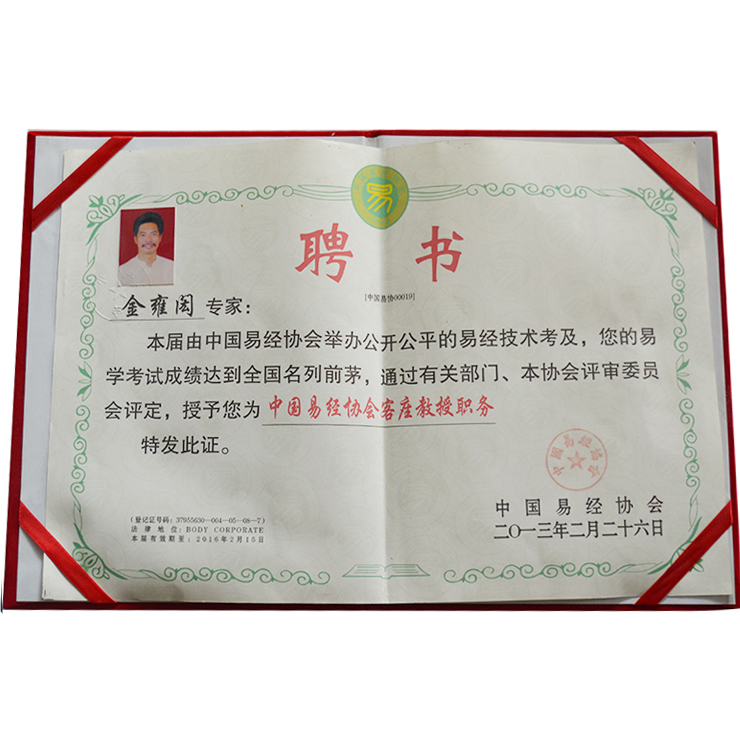 易
聘书
[中国易协00019]
金雍阁 专家：
本届由中国易经协会举办公开公平的易经技术考及，您的易
学考试成绩达到全国名列前茅，通过有关部门、本协会评审委员
会评定，授予您为 中国易经协会客座教授职务
特发此证。
中國易經協会
(登记证号码：37955630—004—05—08—7)
法律地位：BODY CORPORATE
本届有效期至：2016年2月15日
中国易经协会
二〇一三年二月二十六日